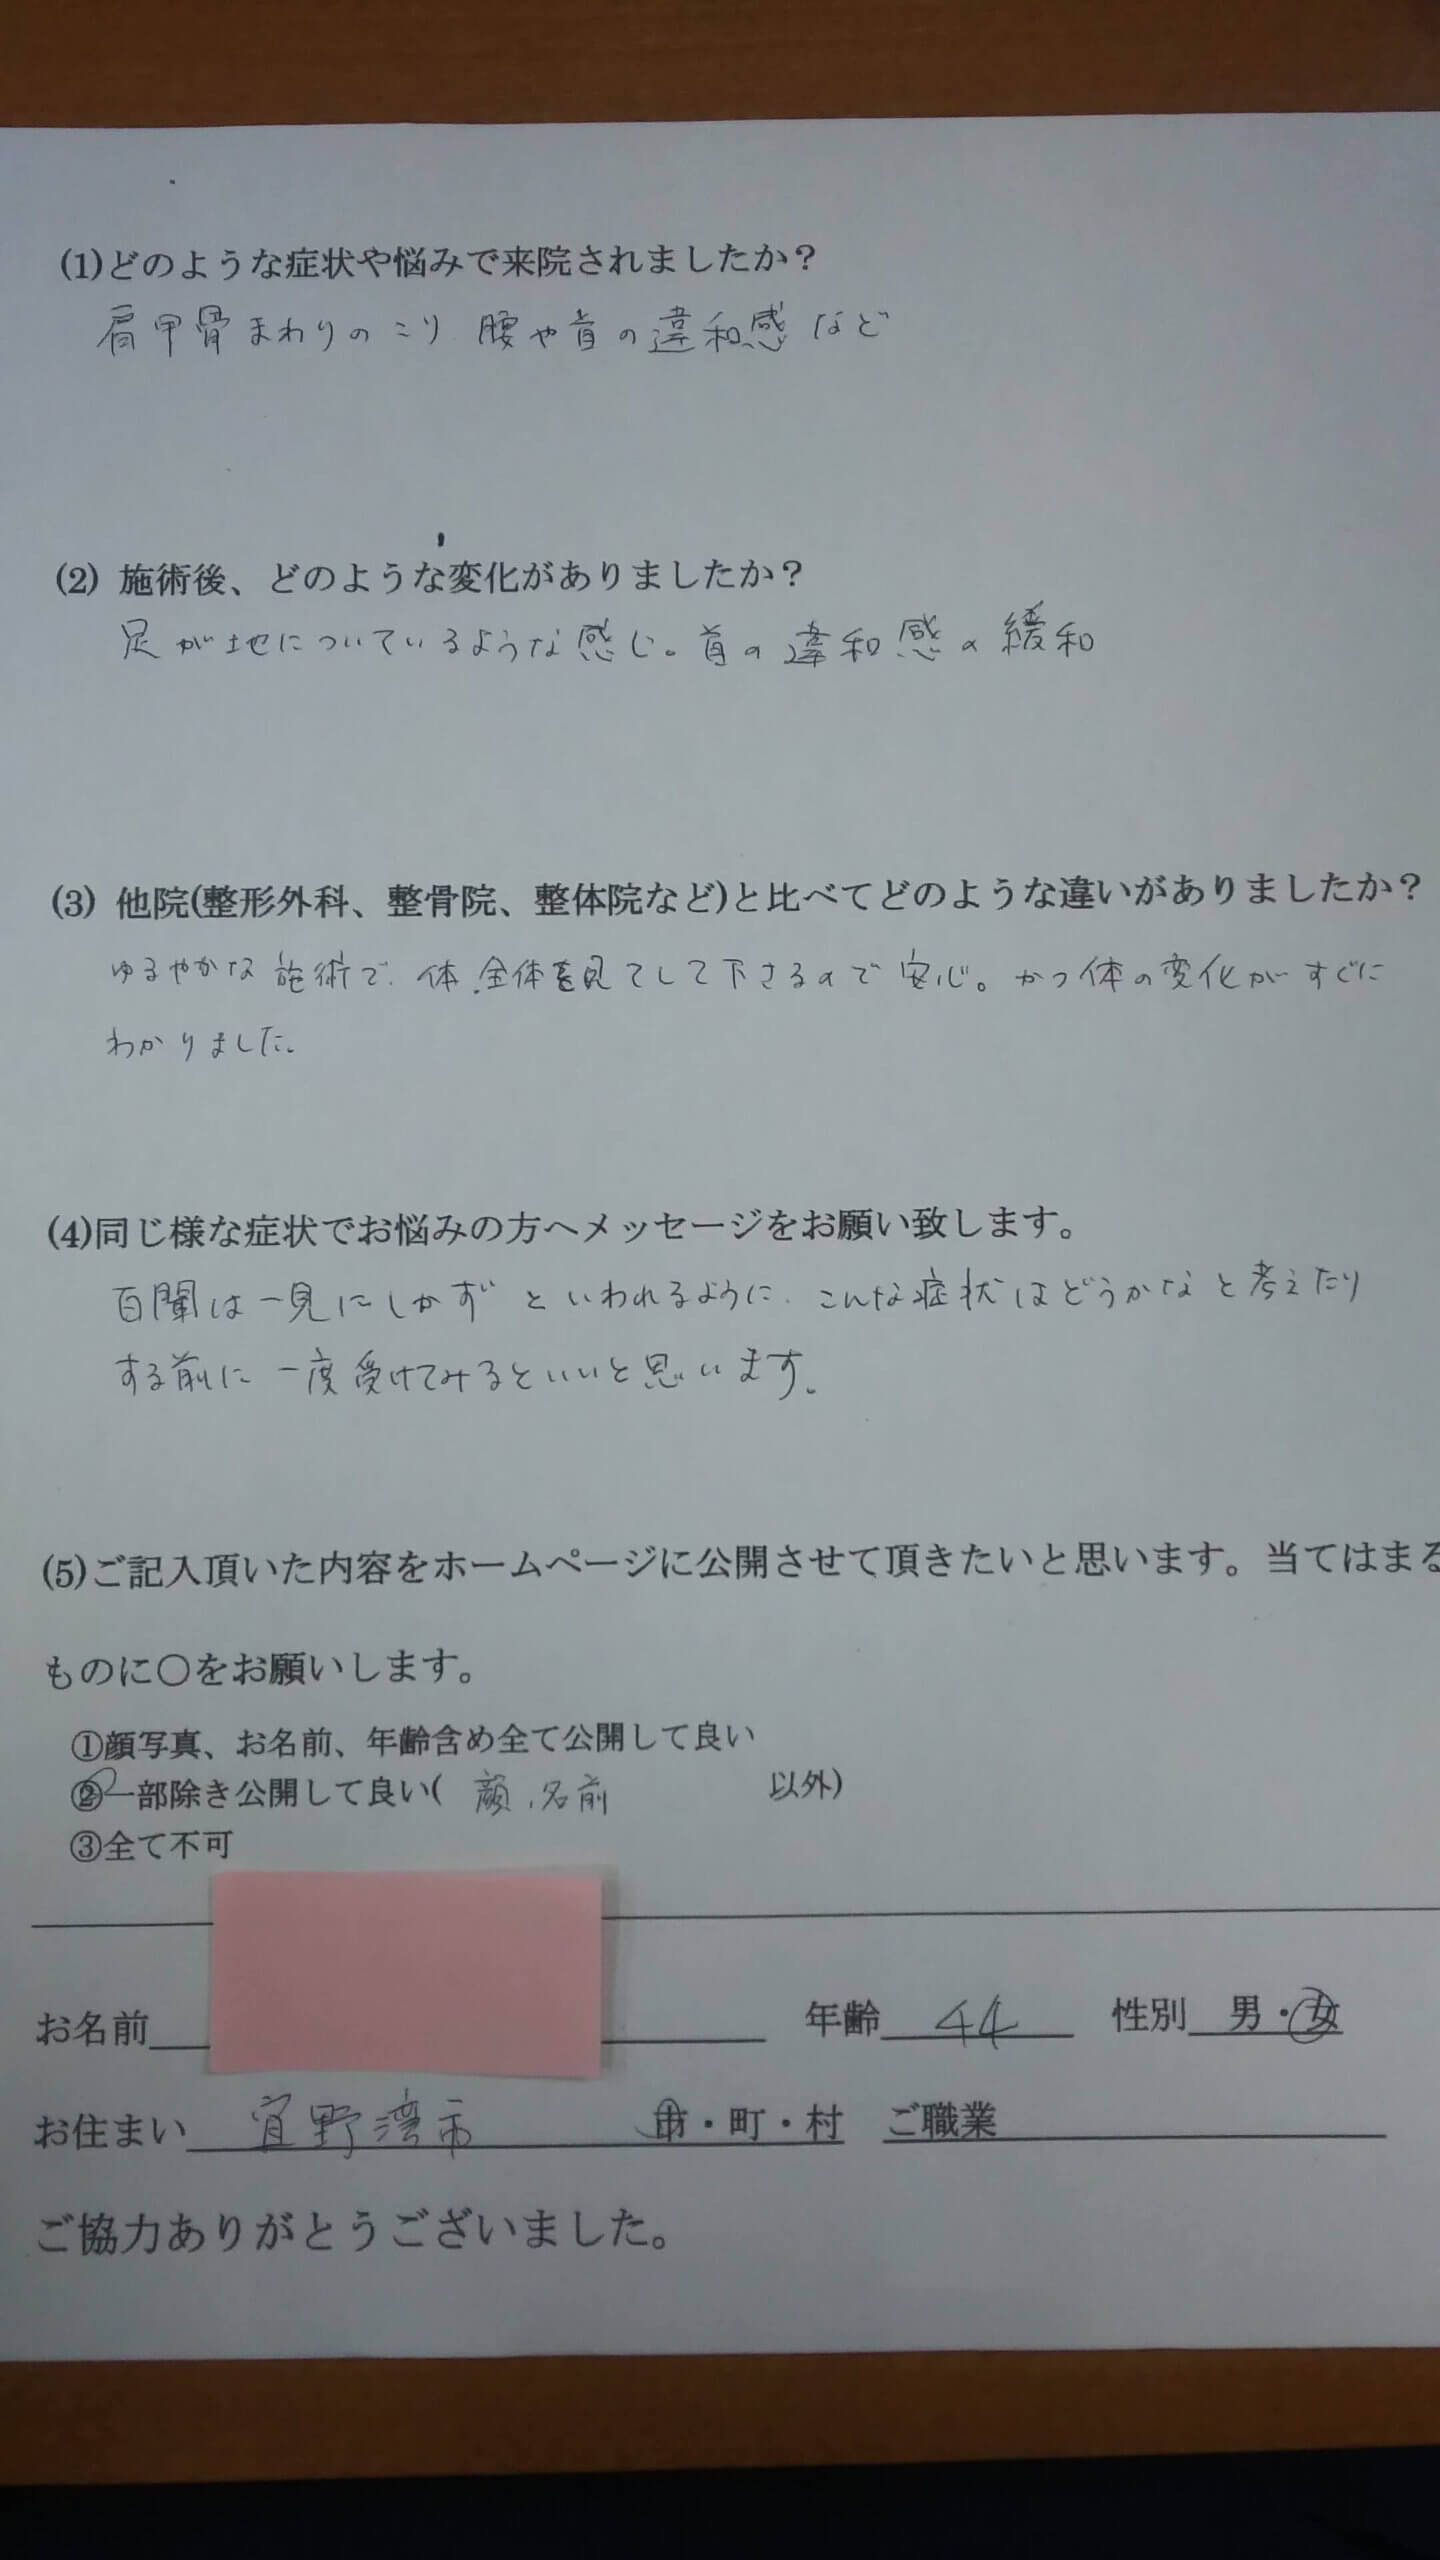 (1)どのような症状や悩みで来院されましたか？
肩甲骨まわりのこり 腰や首の違和感など
(2) 施術後、どのような変化がありましたか？
足が地についているような感じ。首の違和感の緩和
(3) 他院(整形外科、整骨院、整体院など)と比べてどのような違いがありましたか？
ゆるやかな施術で、体、全体を見てして下さるので安心。かつ体の変化がすぐに
わかりました。
(4)同じ様な症状でお悩みの方へメッセージをお願い致します。
百聞は一見にしかずといわれるように、こんな症状はどうかなと考えたり
する前に一度受けてみるといいと思います。
(5)ご記入頂いた内容をホームページに公開させて頂きたいと思います。当てはまる
ものに〇をお願いします。
①顔写真、お名前、年齢含め全て公開して良い
②一部除き公開して良い( 顔、名前 以外)
③全て不可
お名前 年齢 44 性別 男・女
お住まい 宜野湾市 市・町・村 ご職業
ご協力ありがとうございました。